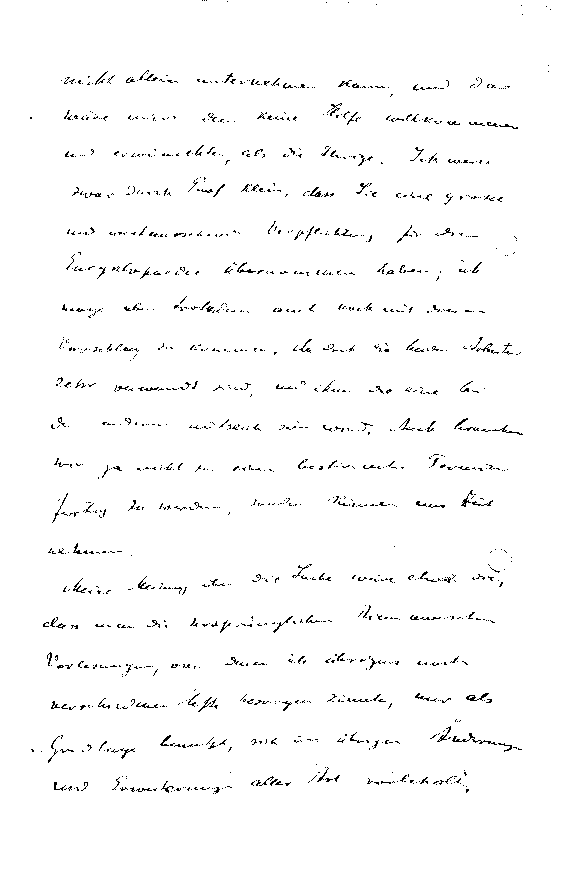 nicht allein unternehmen kann, und da
wäre mir denn keine Hilfe willkommener
und erwünschter, als die Ihrige. Ich weiss
zwar durch Prof Klein, dass Sie eine grosse
und verantwortungs Verpflichtung für die
Encyklopaedie übernommen haben; ich
wage aber trotzdem auch noch mit diesem
Vorschlag zu kommen, da doch die beiden Arbeiten
sehr verwandt sind, und Ihnen die eine bei
der anderen nützlich sein wird. Auch brauchen
wir ja nicht zu einem bestimmten Termin
fertig zu werden, sondern können uns Zeit
nehmen.
Meine Meinung über die Sache wäre etwa die,
dass man die ursprünglichen Riemannschen
Vorlesungen, von denen ich übrigens noch
verschiedene Hefte besorgen könnte, nur als
Grundlage benutzt, sich im übrigen Änderungen
und Erweiterungen aller Art vorbehält,